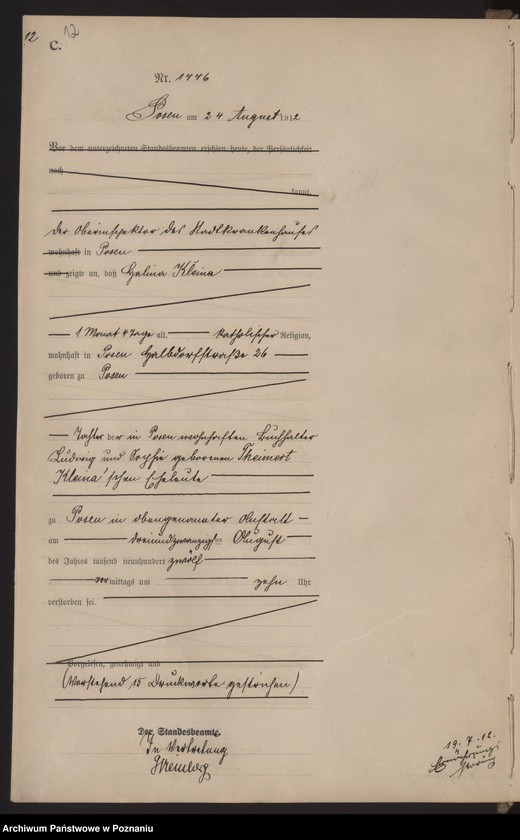 12
12
C.
Nr. 1446
Posen am 24 August 1912
Vor dem unterzeichneten Standesbeamten erschien heute, der Persönlichkeit
nach
kannt,
der Oberinspektor des Stadtkrankenhauses
wohnhaft in Posen
und zeigte an, daß Halina Kleina
1 Monat 4 Tage alt, katholischer Religion,
wohnhaft in Posen Halbdorfstraße 26
geboren zu Posen
Tochter der in Posen wohnhaften Buchhalter
Ludwig und Sophie geborenen Theinert
Kleina'schen Eheleute
zu Posen in obengenannter Anstalt
am dreiundzwanzigsten August
des Jahres tausend neunhundert zwölf
vormittags um zehn Uhr
verstorben sei.
Vorgelesen, genehmigt und
(Vorstehend 15 Druckworte gestrichen)
Der Standesbeamte.
In Vertretung
19. 7. 12.
Archiwum Państwowe w Poznaniu